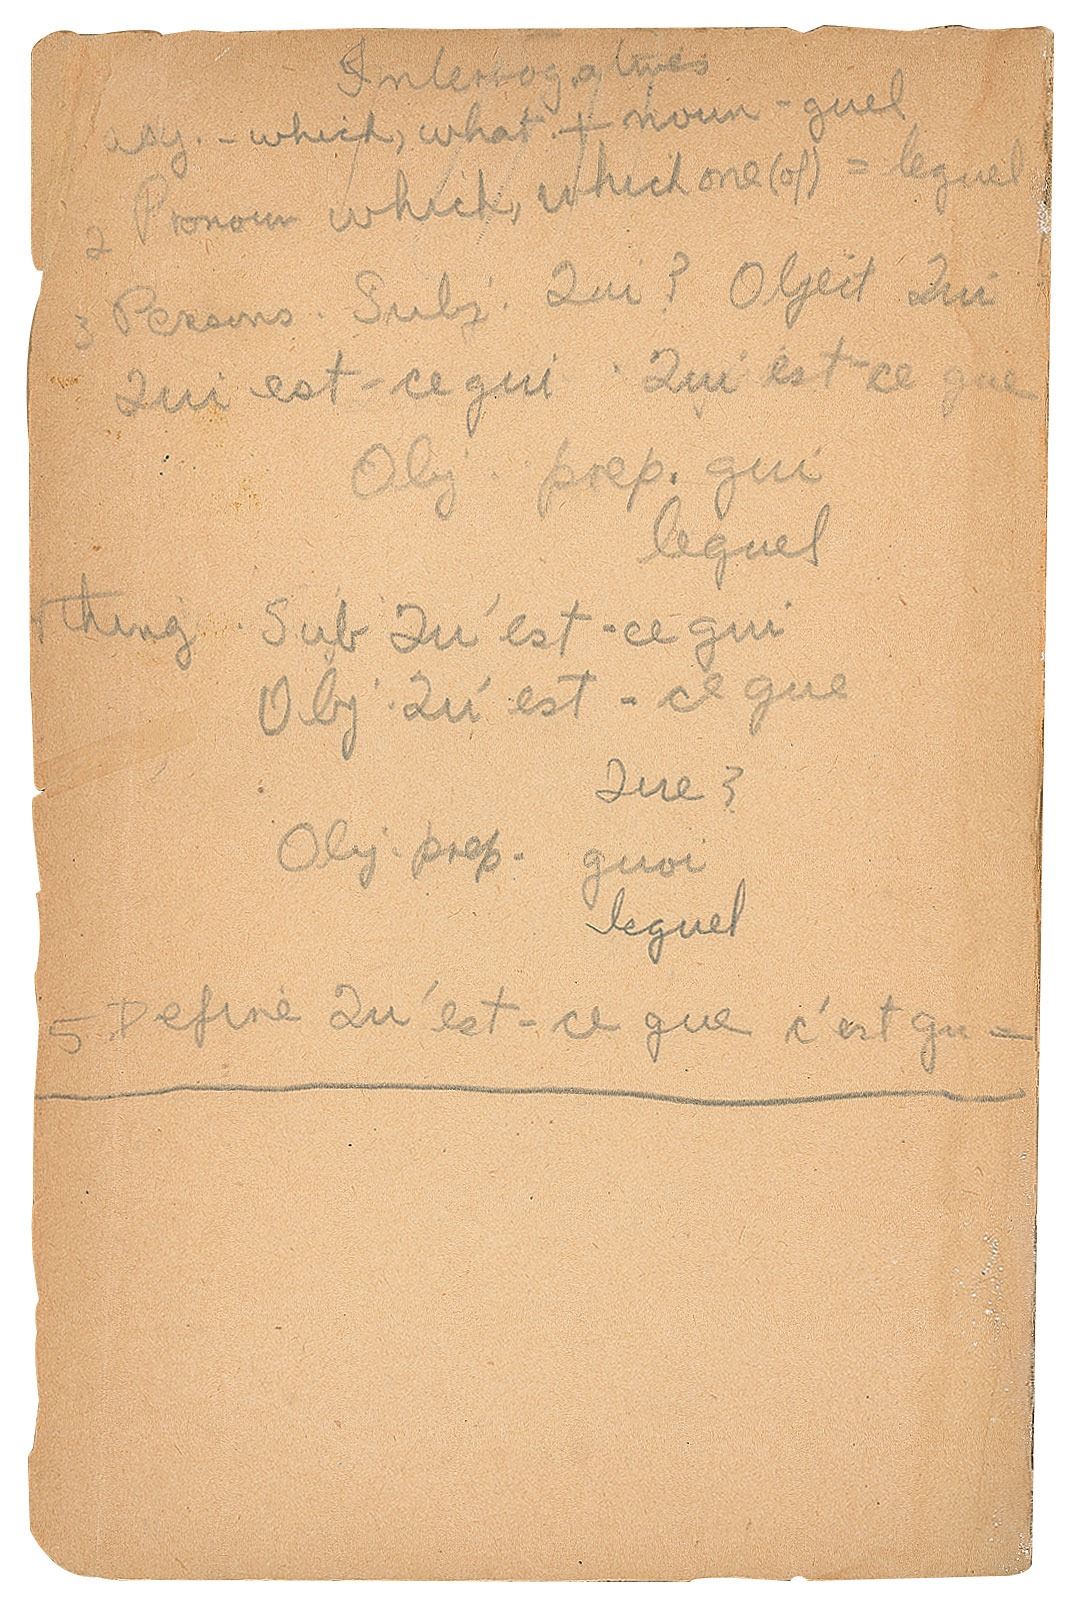 Interrogatives
adj. - which, what + noun - quel
2 Pronoun which, which one (of) = lequel
3 Persons. Subj. Qui? Object Qui
Qui est-ce qui . Qui est-ce que
Obj. prep. qui
lequel
thing. Sub Qu'est-ce qui
Obj. Qu'est-ce que
Que?
Obj. prep. quoi
lequel
5. Define Qu'est-ce que c'est qu-